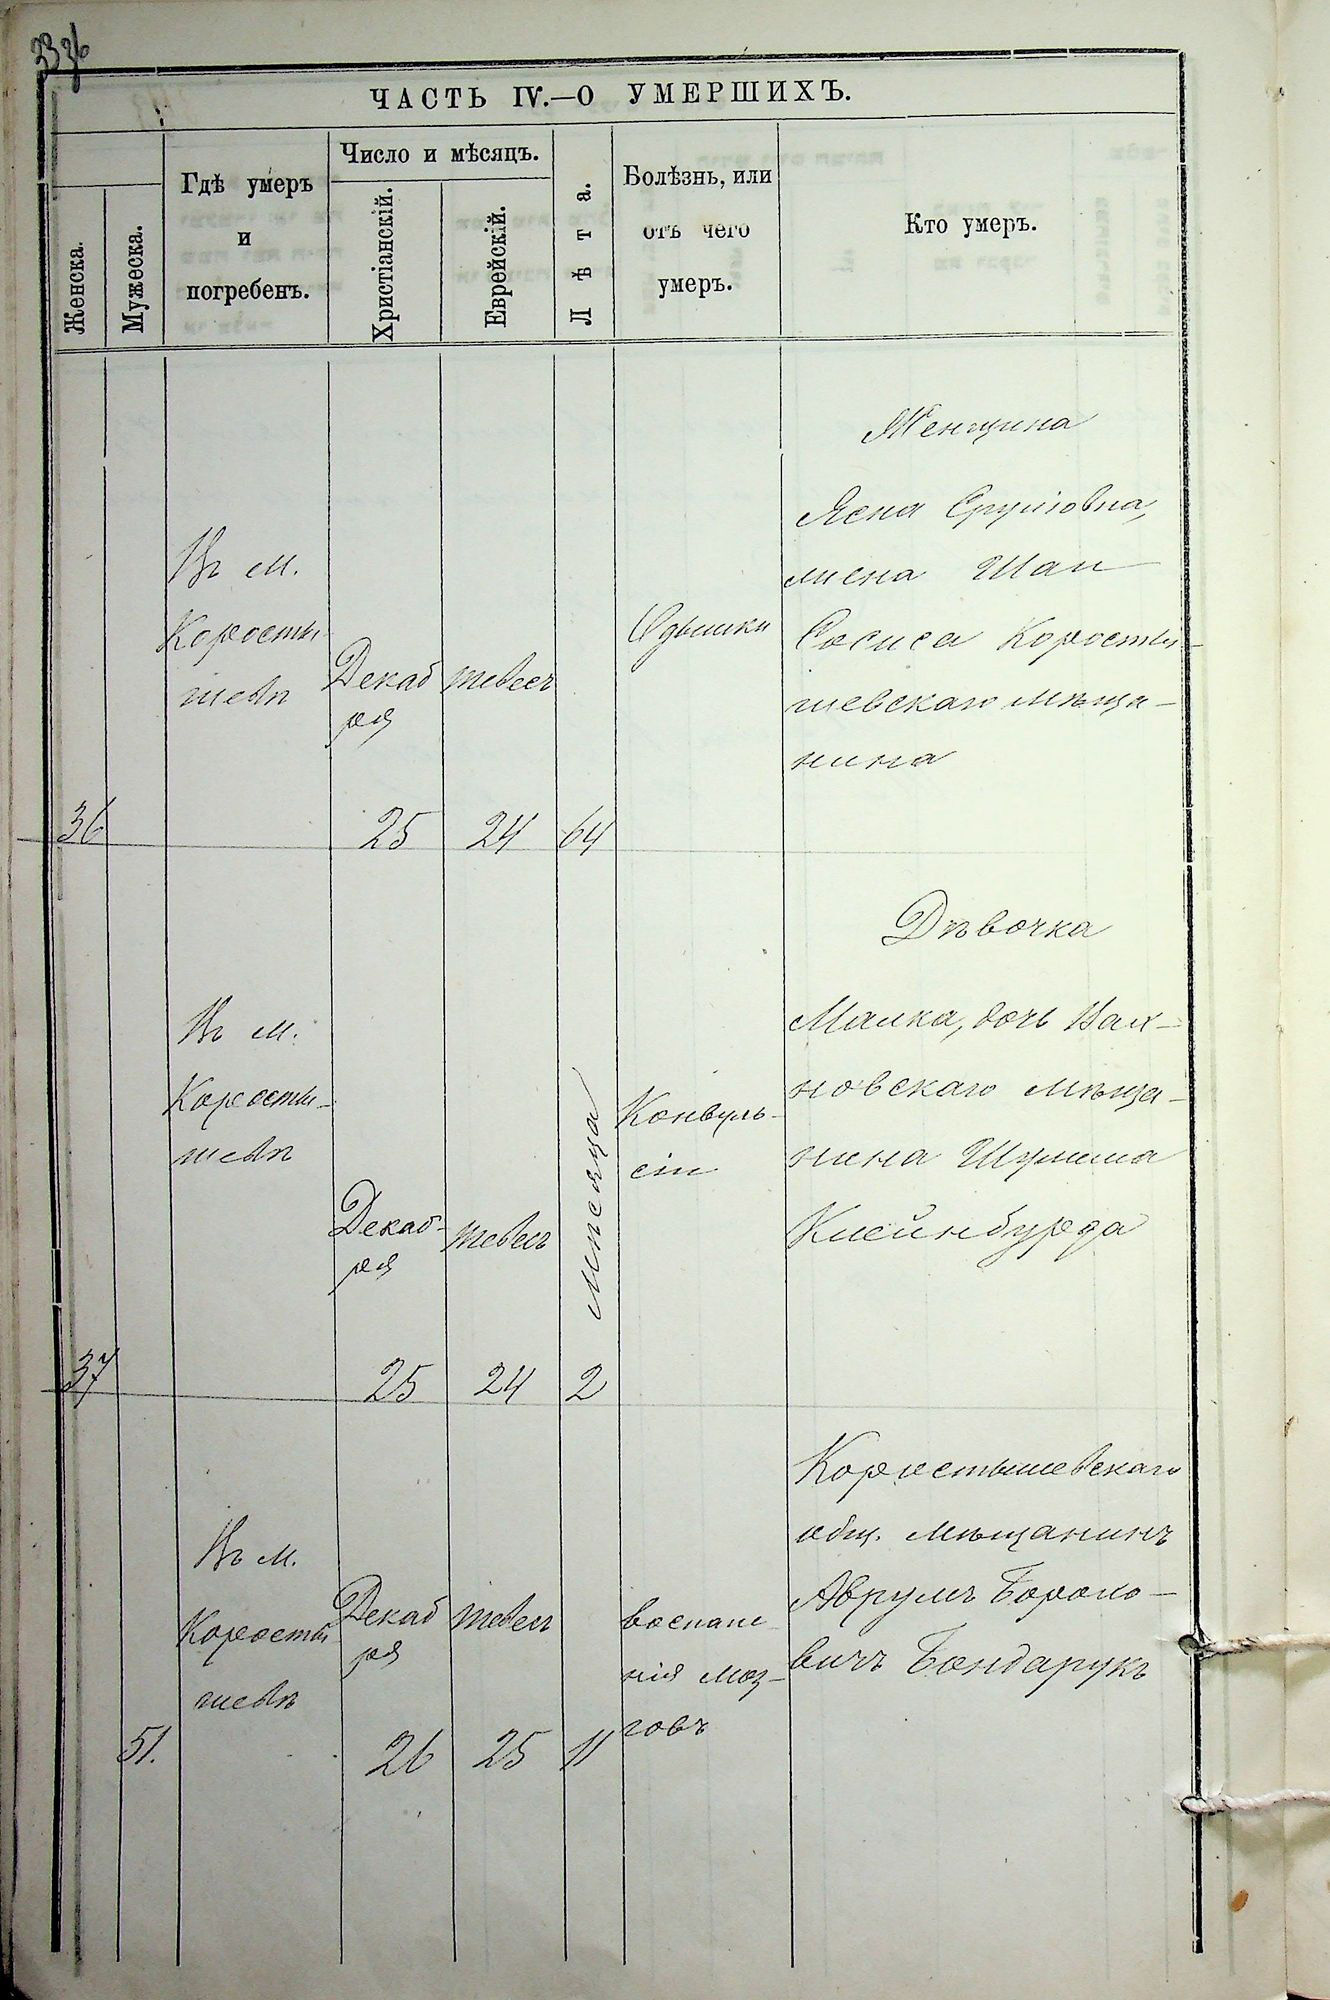 ЧАСТЬ IV.—О УМЕРШИХЪ.
Женска.
Мужеска.
Гдѣ умеръ
и
погребенъ.
Число и мѣсяцъ.
Христіанскій.
Еврейскій.
Лѣта.
Болѣзнь, или
отъ чего
умеръ.
Кто умеръ.
36
Въ м.
Коросты
шевѣ
Декаб
ря
25
тевесъ
24
64
Одышки
Женщина
Сруліовна,
жена
Сосиса Корости-
шевскаго мѣща-
нина
37
Въ м.
Корости-
шевѣ
Декаб-
ря
25
тевесъ
24
мѣсяца
2
Конвуль-
сіи
Дѣвочка
Малка, дочь
новскаго мѣща-
нина Шулима
Клейнбурда
51.
Въ м.
Коросты-
шевѣ
Декаб
ря
26
тевесъ
25
11
воспале-
нія моз-
говъ
Коростышевскаго
общ. мѣщанинъ
Аврумъ Борохо-
вичъ Бондарукъ